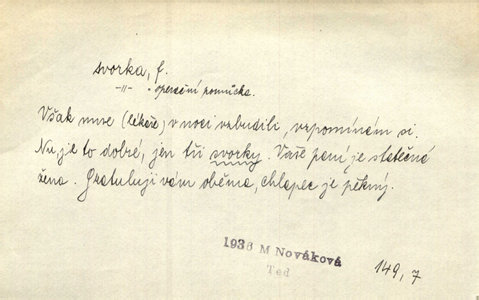 svorka, f.
-"- • operační pomůcka.
Však mne (lékaře) v noci vzbudili, vzpomínám si.
Nu, je to dobré, jen tři svorky. Vaše paní je statečná
žena. Gratuluji vám oběma, chlapec je pěkný.
1936 M Nováková
Ted
149, 7